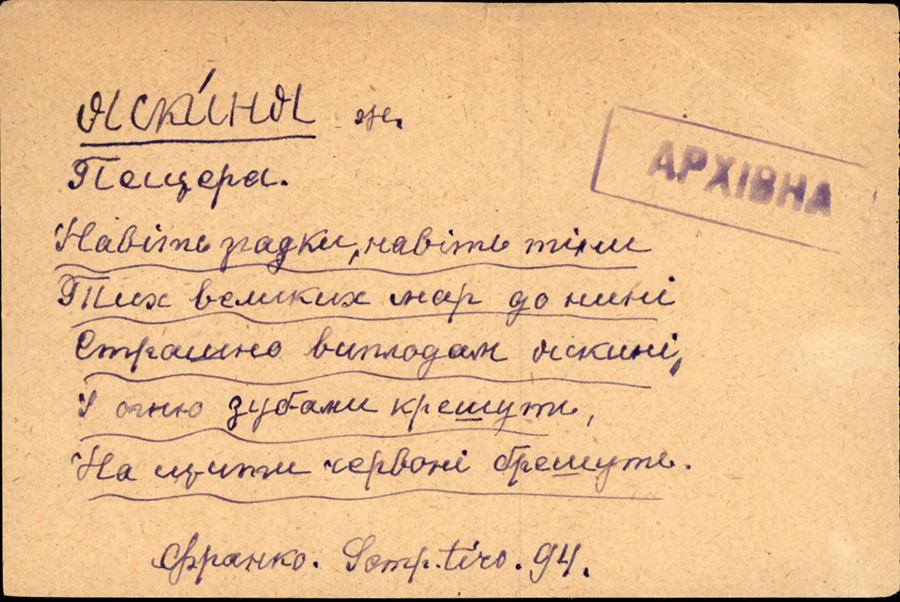 Яски́ня ж.
АРХІВНА
Пещера.
Навіть згадки, навіть тіни
Тих великих мар до нині
Страшно виплодам яскині,
І огню зубами крешуть,
На щити червоні брешуть.
Франко. Semp. tiro. 94.